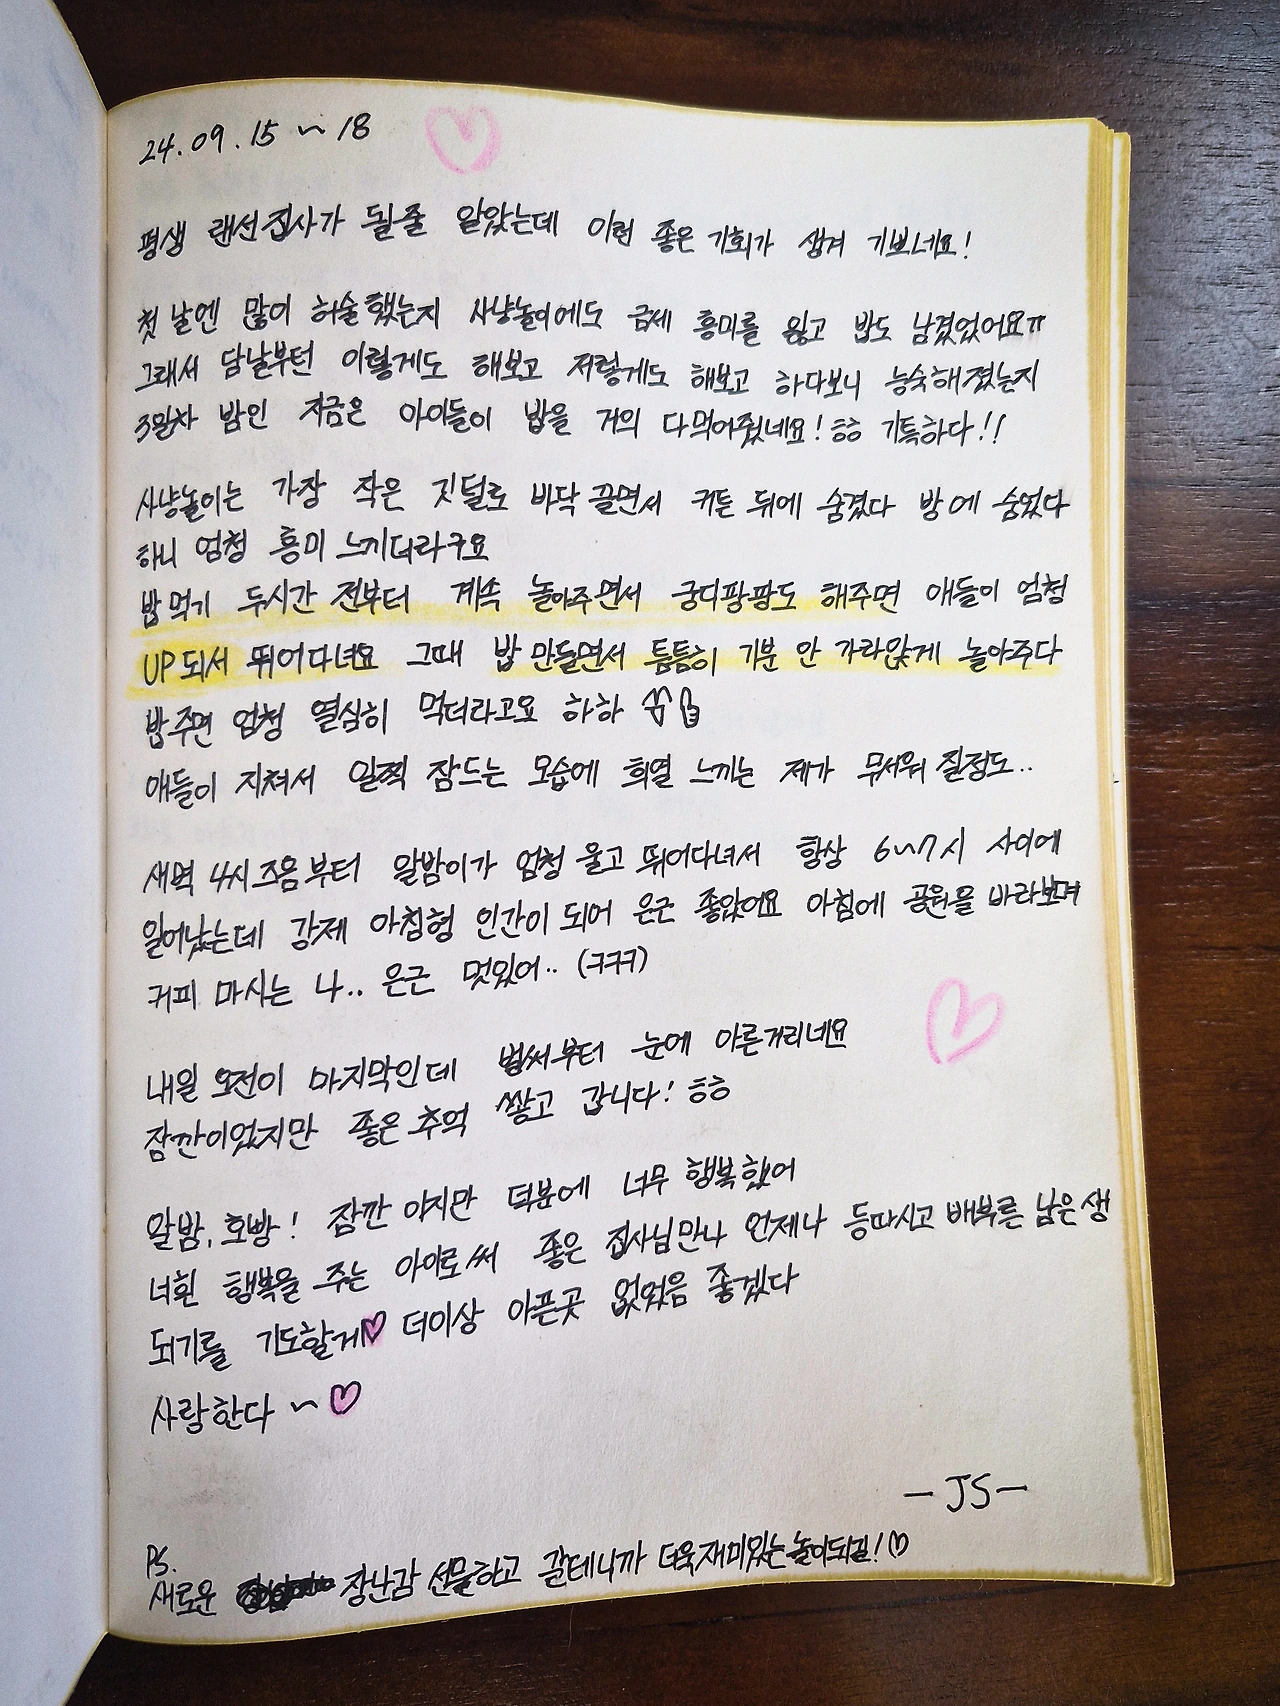 24.09.15 ~ 18
평생 랜선집사가 될줄 알았는데 이런 좋은 기회가 생겨 기쁘네요!
첫날엔 많이 허술했는지 사냥놀이에도 금세 흥미를 잃고 밥도 남겼었어요ㅠ
그래서 담날부턴 이렇게도 해보고 저렇게도 해보고 하다보니 능숙해졌는지
3일차 밤인 지금은 아이들이 밥을 거의 다먹어줬네요! ㅎㅎ 기특하다!!
사냥놀이는 가장 작은 깃털로 바닥 끌면서 커튼 뒤에 숨겼다 방에 숨었다
하니 엄청 흥미 느끼더라구요
밥먹기 두시간 전부터 계속 놀아주면서 궁디팡팡도 해주면 애들이 엄청
UP되서 뛰어다녀요 그때 밥 만들면서 틈틈히 기분 안 가라앉게 놀아주다
밥주면 엄청 열심히 먹더라고요 하하
애들이 지쳐서 일찍 잠드는 모습에 희열 느끼는 제가 무서워 질정도..
새벽 4시 즈음부터 알밤이가 엄청 울고 뛰어다녀서 항상 6~7시 사이에
일어났는데 강제 아침형 인간이 되어 은근 좋았어요 아침에 공원을 바라보며
커피 마시는 나.. 은근 멋있어.. (ㅋㅋㅋ)
내일 오전이 마지막인데 벌써부터 눈에 아른거리네요
잠깐이었지만 좋은 추억 쌓고 갑니다! ㅎㅎ
알밤, 호빵! 잠깐 이지만 덕분에 너무 행복했어
너흰 행복을 주는 아이로써 좋은 집사님만나 언제나 등따시고 배부른 남은 생
되기를 기도할게♡ 더이상 아픈곳 없었음 좋겠다
사랑한다 ~ ♡
- JS -
PS.
새로운 장난감 선물하고 갈테니까 더욱 재미있는 놀이되길! ♡